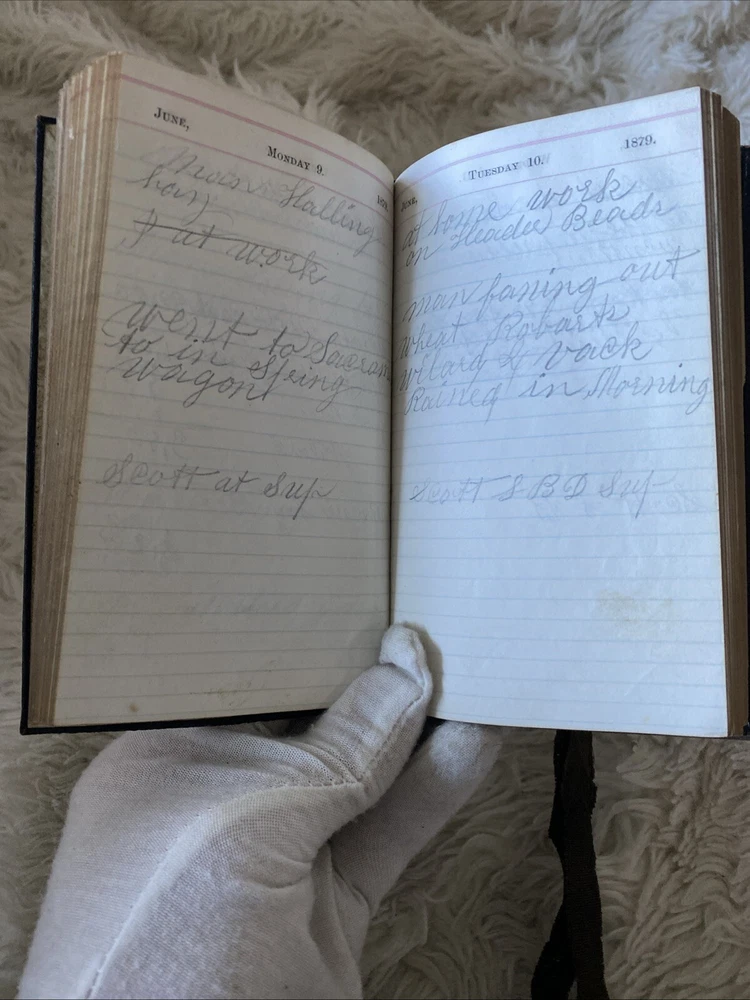 June,
Monday 9.
1879
man Halling
hay
I at work
went to Sacramen
to in Spring
Wagon
Scott at Sup
June,
Tuesday 10.
1879.
at home work
on Header Beads
man faning out
wheat Robarts
Wilard & vack
Rained in Morning
Scott S B D Sup